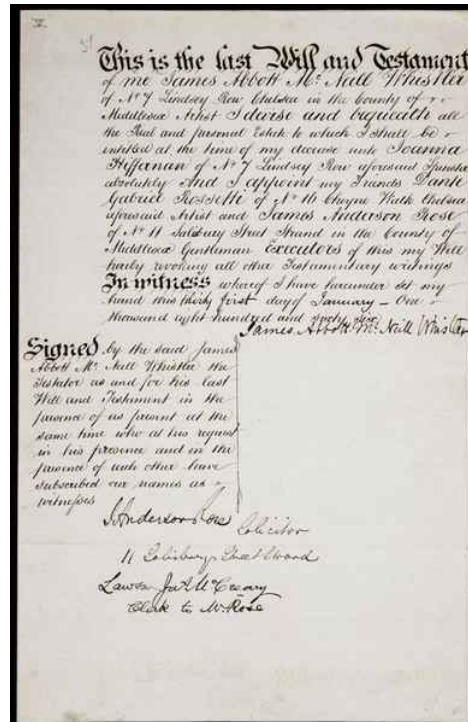 This is the last Will and Testament
of me James Abbott Mc. Neill Whistler
of No. 7 Lindsey Row Chelsea in the County of
Middlesex Artist I devise and bequeath all
the Real and personal Estate to which I shall be
entitled at the time of my decease unto Joanna
Hiffernan of No. 7 Lindsey Row aforesaid Spinster
absolutely And I appoint my friends Dante
Gabriel Rossetti of No. 16 Cheyne Walk Chelsea
aforesaid Artist and James Anderson Rose
of No. 11 Salisbury Street Strand in the County of
Middlesex Gentleman Executors of this my Will
hereby revoking all other Testamentary writings
In witness whereof I have hereunder set my
hand this thirty first day of January – One
thousand eight hundred and sixty
James Abbott Mc. Neill Whistler
Signed by the said James
Abbott Mc. Neill Whistler the
Testator as and for his last
Will and Testament in the
presence of us present at the
same time who at his request
in his presence and in the
presence of each other have
subscribed our names as
witnesses
J. Anderson Rose
Solicitor
11 Salisbury Street Strand
Clerk to Mr Rose